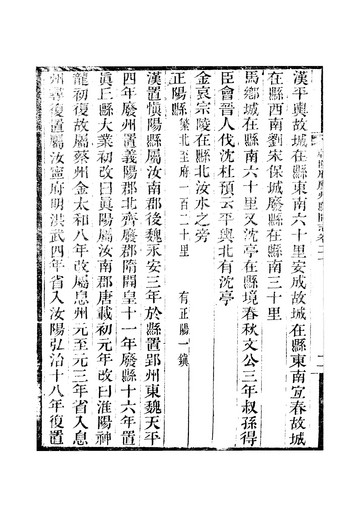 漢平輿故城在縣東南六十里安成故城在縣東南宜春故城
在縣西南劉宋保城廢縣在縣南三十里
馬鄉城在縣南六十里又沈亭在縣境春秋文公三年叔孫得
臣會晉人伐沈杜預云平輿北有沈亭
金哀宗陵在縣北汝水之旁
正陽縣 繁北至府一百二十里 有正陽一鎮
漢置慎陽縣屬汝南郡後魏永安三年於縣置郢州東魏天平
四年廢州置義陽郡北齊廢郡隋開皇十一年廢縣十六年置
真丘縣大業初改曰真陽屬汝南郡唐載初元年改曰淮陽神
龍初復故屬蔡州金太和八年改屬息州元至元三年省入息
州尋復置屬汝寧府明洪武四年省入汝陽弘治十八年復置